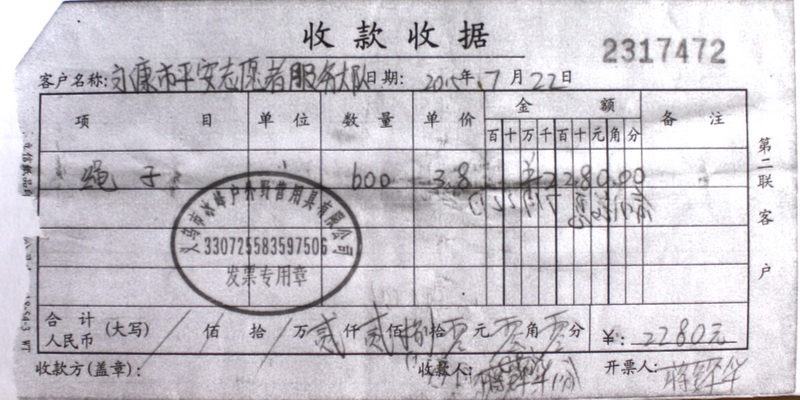 收款收据
2317472
客户名称:永康市平安志愿者服务大队 日期: 2015年 7月 22日
项 目 单位 数量 单价 金 额 备 注
百 十 万 千 百 十 元 角 分
绳子 600 3.8 ¥ 2 2 8 0. 0 0
义乌市冰峰户外野营用具有限公司
330725583597506
发票专用章
第二联 客户
合计 人民币 (大写) / 佰 / 拾 / 万 贰 仟 贰 佰 捌 拾 零 元 零 角 零 分 ¥: 2280元
收款方(盖章): 收款人: 开票人: